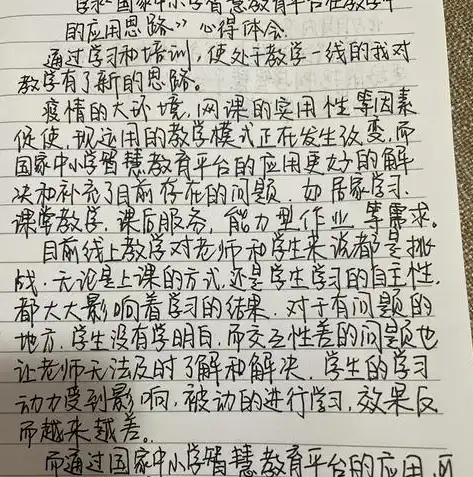 学《国家中小学智慧教育平台在教学中
的应用思路》心得体会
通过学习和培训，使处于教学一线的我对
教学有了新的思路。
疫情的大环境，网课的实用性等因素
促使，现运用的教学模式正在发生改变，而
国家中小学智慧教育平台的应用更好的解
决和补充了目前存在的问题，如居家学习、
课堂教学、课后服务，能力型作业等需求。
目前线上教学对老师和学生来说都是挑
战，无论是上课的方式，还是学生学习的自主性，
都大大影响着学习的结果，对于有问题的
地方，学生没有学明白，而交互性差的问题也
让老师无法及时了解和解决，学生的学习
动力受到影响，被动的进行学习，效果反
而越来越差。
而通过国家中小学智慧教育平台的应用，可